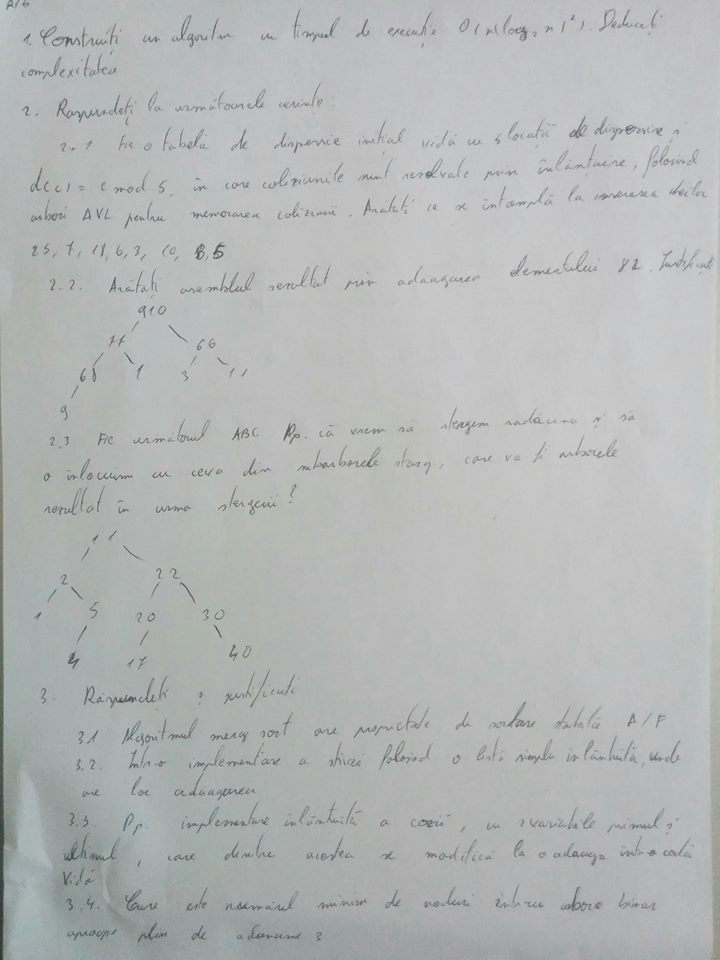 1. Construiți un algoritm cu timpul de execuție O(n(log₂ n)²). Deduceți
complexitatea
2. Raspundeți la următoarele cerințe:
2.1 Fie o tabelă de dispersie inițial vidă cu 5 locații de dispersie și
d(c) = c mod 5, în care coliziunile sunt rezolvate prin înlănțuire, folosind
arbori AVL pentru memorarea coliziunii. Arătați ce se întâmplă la inserarea cheilor
25, 7, 18, 6, 3, 10, 8, 5
2.2. Arătați ansamblul rezultat prin adăugarea elementului 82. Justificați
910
77 66
60 1 3 11
9
2.3 Fie următorul ABC. Pp. că vrem să ștergem rădăcina și să
o inlocuim cu ceva din subarborele stang, care va fi arborele
rezultat în urma ștergerii?
11
2 22
1 5 20 30
4 17 40
3. Răspundeți și justificați
3.1 Algoritmul merge sort are proprietate de sortare stabilă A/F
3.2. Într-o implementare a stivei folosind o listă simplu înlănțuită, unde
are loc adăugarea
3.3. Pp. implementare inlănțuită a cozii, cu 2 variabile primul și
ultimul, care dintre acestea se modifică la o adăuga într-o coadă
vidă
3.4. Care este numărul minim de noduri într-un arbore binar
aproape plin de adancime 3